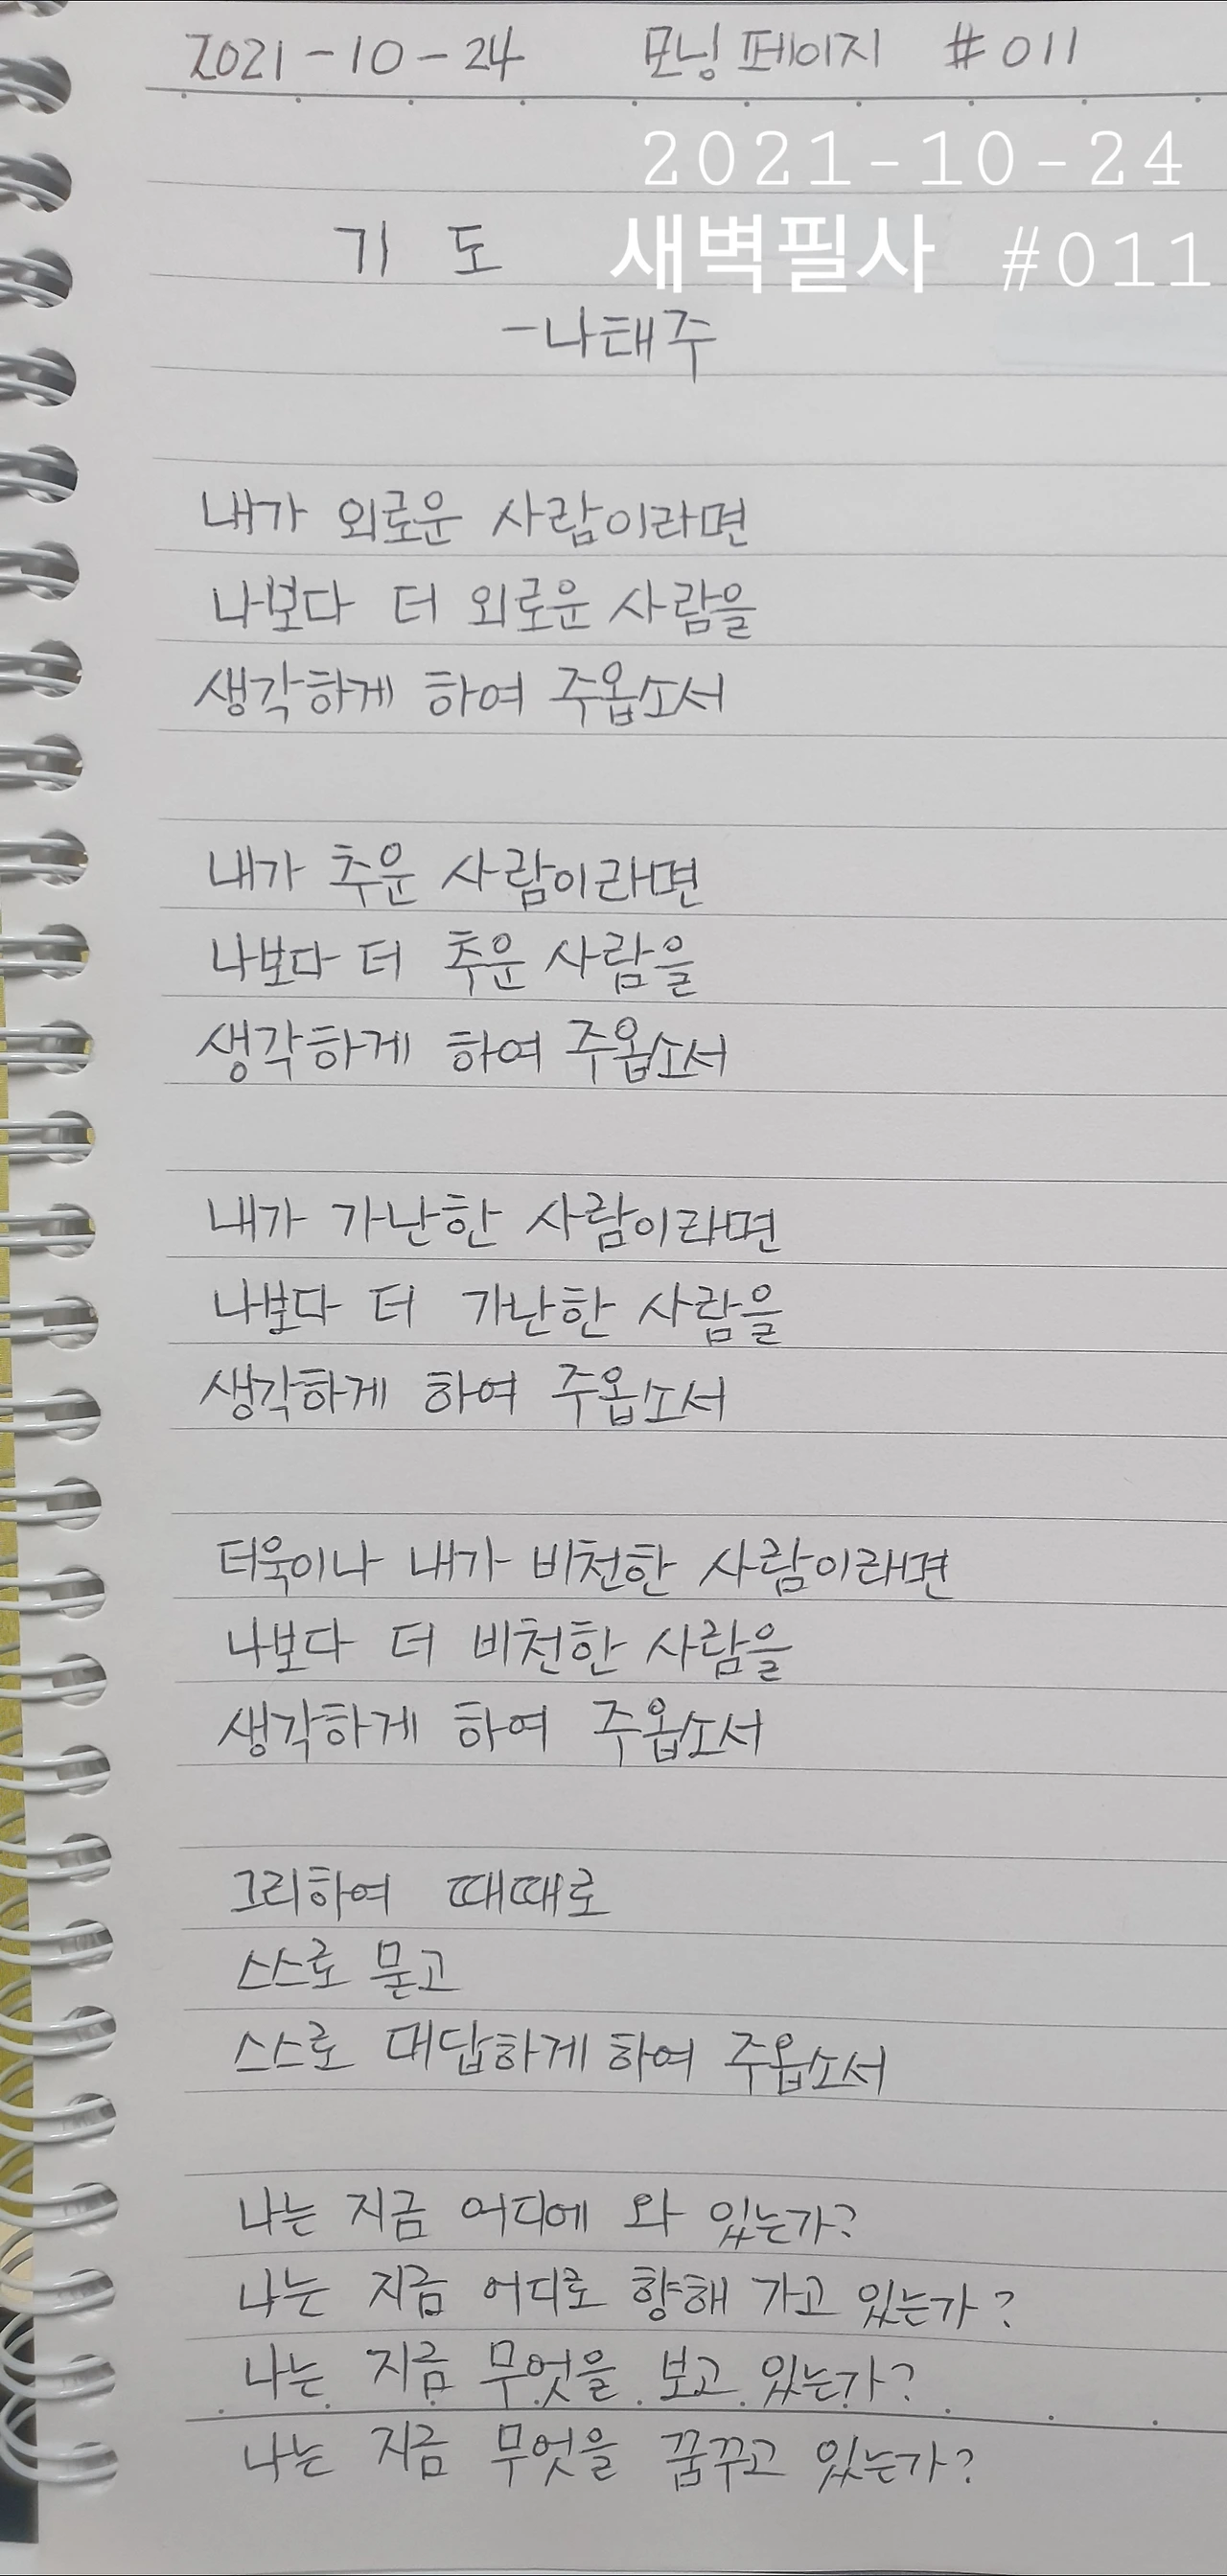 2021-10-24 모닝페이지 #011
2021-10-24
기도 새벽필사 #011
-나태주
내가 외로운 사람이라면
나보다 더 외로운 사람을
생각하게 하여 주옵소서
내가 추운 사람이라면
나보다 더 추운 사람을
생각하게 하여 주옵소서
내가 가난한 사람이라면
나보다 더 가난한 사람을
생각하게 하여 주옵소서
더욱이나 내가 비천한 사람이라면
나보다 더 비천한 사람을
생각하게 하여 주옵소서
그리하여 때때로
스스로 묻고
스스로 대답하게 하여 주옵소서
나는 지금 어디에 와 있는가?
나는 지금 어디로 향해 가고 있는가?
나는 지금 무엇을 보고 있는가?
나는 지금 무엇을 꿈꾸고 있는가?